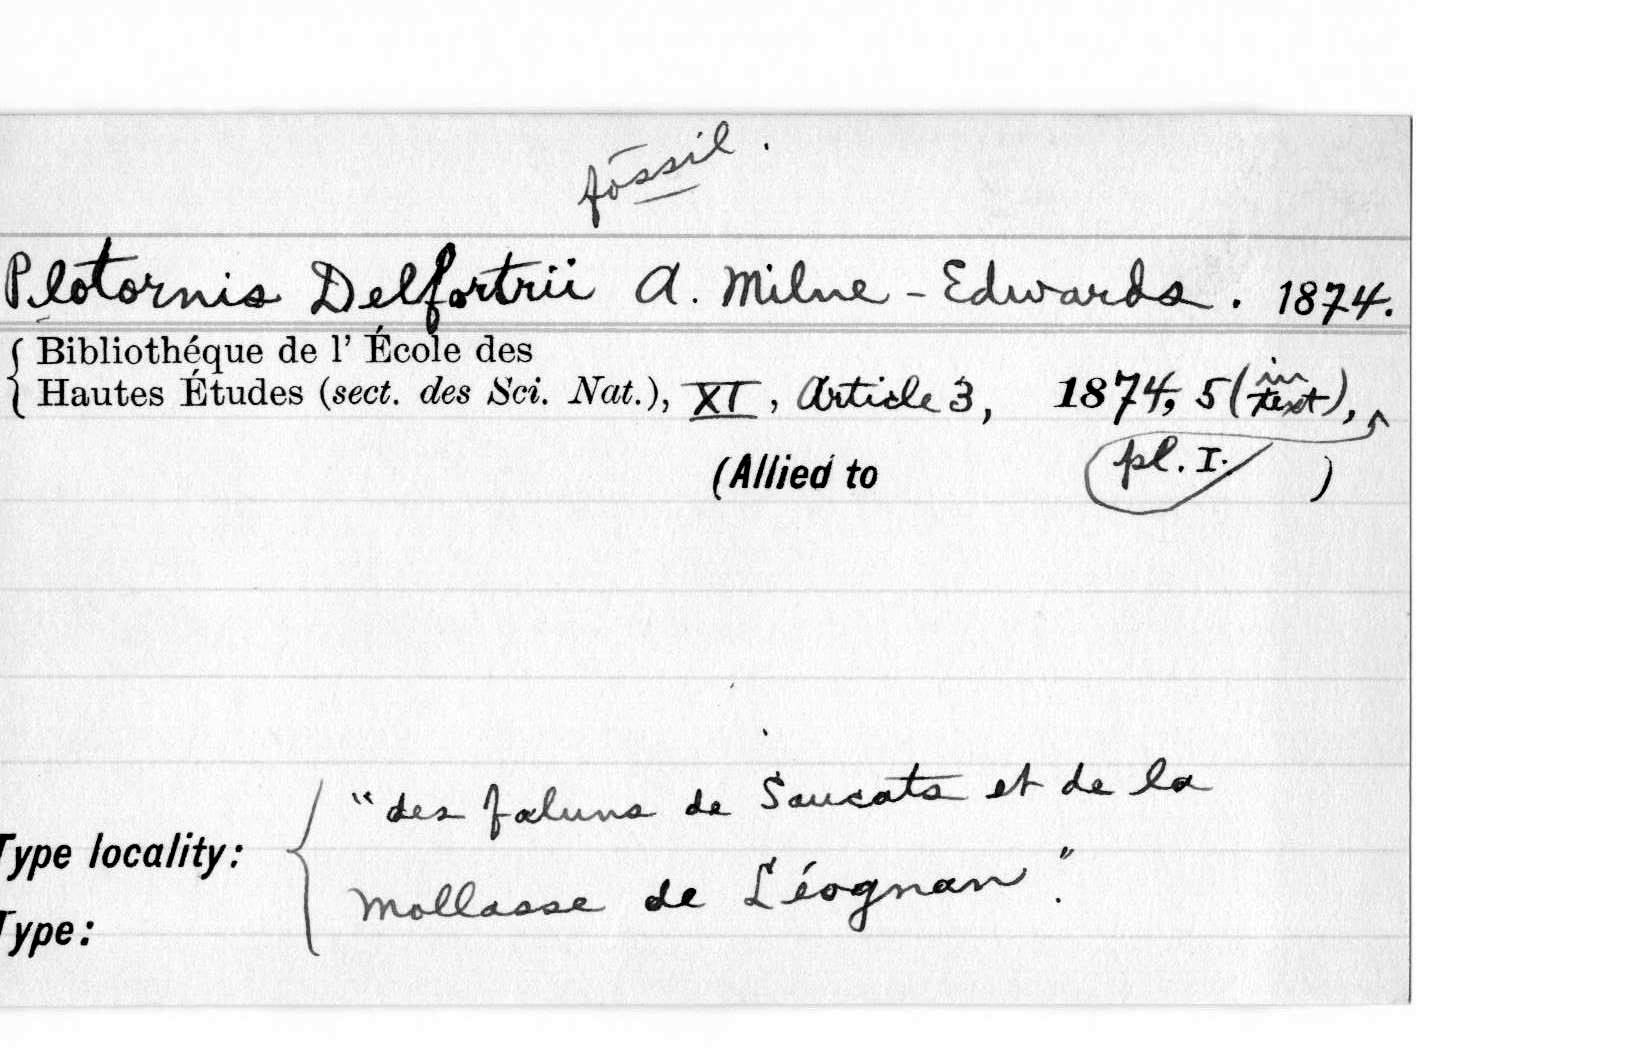 fossil.
Plotornis Delfortrii A. Milne-Edwards. 1874.
Bibliothéque de l' École des
Hautes Études (sect. des Sci. Nat.), XI, Article 3, 1874, 5 (in text),
(Allied to pl. I. )
"des faluns de Saucats et de la
Type locality:
mollasse de Léognan".
Type: